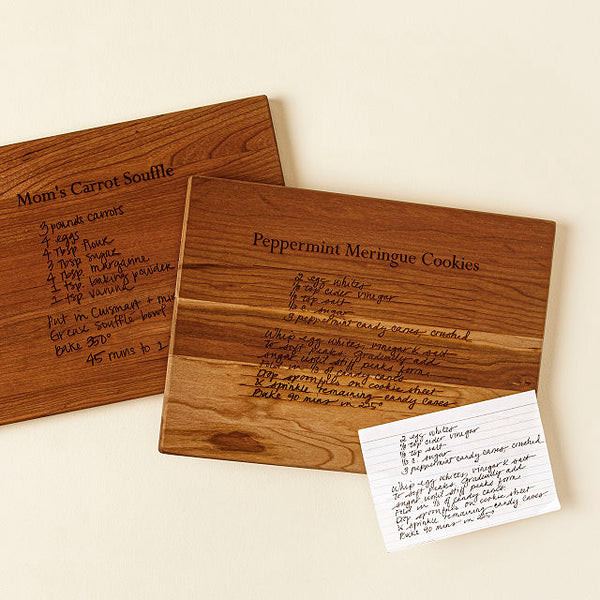 Mom's Carrot Souffle
3 pounds carrots
4 eggs
4 Tbsp flour
3 Tbsp sugar
4 Tbsp margarine
1 tsp baking powder
2 tsp vanilla
Put in Cuisinart + mix
Grease souffle bowl
Bake 350°
45 mins to 1
Peppermint Meringue Cookies
2 egg whites
⅛ tsp cider vinegar
⅛ tsp salt
½ c. sugar
3 peppermint candy canes, crushed
Whip egg whites, vinegar & salt
to soft peaks. Gradually add
sugar until stiff peaks form.
Fold in ⅓ of candy canes
Drop spoonfuls on cookie sheet
& sprinkle remaining candy canes
Bake 90 mins in 225°
2 egg whites
⅛ tsp cider vinegar
⅛ tsp salt
½ c. sugar
3 peppermint candy canes, crushed
Whip egg whites, vinegar & salt
to soft peaks. Gradually add
sugar until stiff peaks form.
Fold in ⅓ of candy canes
Drop spoonfuls on cookie sheet
& sprinkle remaining candy canes
Bake 90 mins in 225°